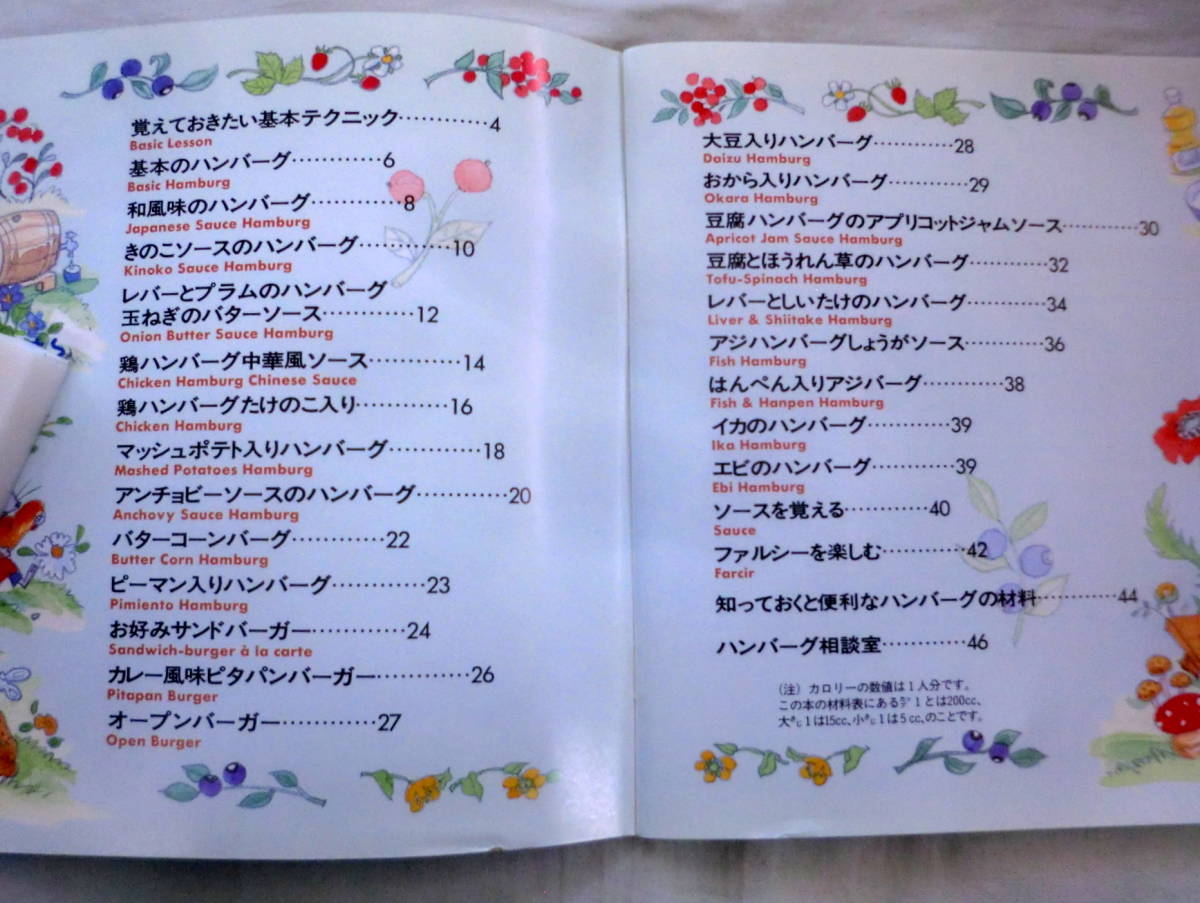 覚えておきたい基本テクニック…………4
Basic Lesson
基本のハンバーグ…………6
Basic Hamburg
和風味のハンバーグ…………8
Japanese Sauce Hamburg
きのこソースのハンバーグ…………10
Kinoko Sauce Hamburg
レバーとプラムのハンバーグ
玉ねぎのバターソース…………12
Onion Butter Sauce Hamburg
鶏ハンバーグ中華風ソース…………14
Chicken Hamburg Chinese Sauce
鶏ハンバーグたけのこ入り…………16
Chicken Hamburg
マッシュポテト入りハンバーグ…………18
Mashed Potatoes Hamburg
アンチョビーソースのハンバーグ…………20
Anchovy Sauce Hamburg
バターコーンバーグ…………22
Butter Corn Hamburg
ピーマン入りハンバーグ…………23
Pimiento Hamburg
お好みサンドバーガー…………24
Sandwich-burger à la carte
カレー風味ピタパンバーガー…………26
Pitapan Burger
オープンバーガー…………27
Open Burger
大豆入りハンバーグ…………28
Daizu Hamburg
おから入りハンバーグ…………29
Okara Hamburg
豆腐ハンバーグのアプリコットジャムソース…………30
Apricot Jam Sauce Hamburg
豆腐とほうれん草のハンバーグ…………32
Tofu-Spinach Hamburg
レバーとしいたけのハンバーグ…………34
Liver & Shiitake Hamburg
アジハンバーグしょうがソース…………36
Fish Hamburg
はんぺん入りアジバーグ…………38
Fish & Hanpen Hamburg
イカのハンバーグ…………39
Ika Hamburg
エビのハンバーグ…………39
Ebi Hamburg
ソースを覚える…………40
Sauce
ファルシーを楽しむ…………42
Farcir
知っておくと便利なハンバーグの材料…………44
ハンバーグ相談室…………46
(注) カロリーの数値は1人分です。
この本の材料表にあるカップ1とは200cc、
大さじ1は15cc、小さじ1は5cc、のことです。